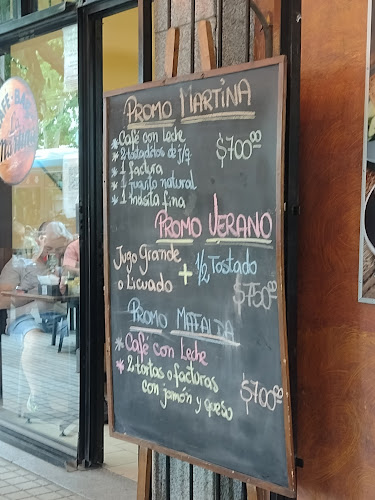 PROMO MARTINA
* Café con Leche
* 2 tostaditos de j/q
* 1 factura
* 1 juguito natural
* 1 masita fina
$700.00
PROMO VERANO
Jugo Grande
o Licuado + 1/2 Tostado
$750.00
PROMO MAFALDA
* Café con Leche
* 2 tortas o facturas
con jamón y queso
$700.00